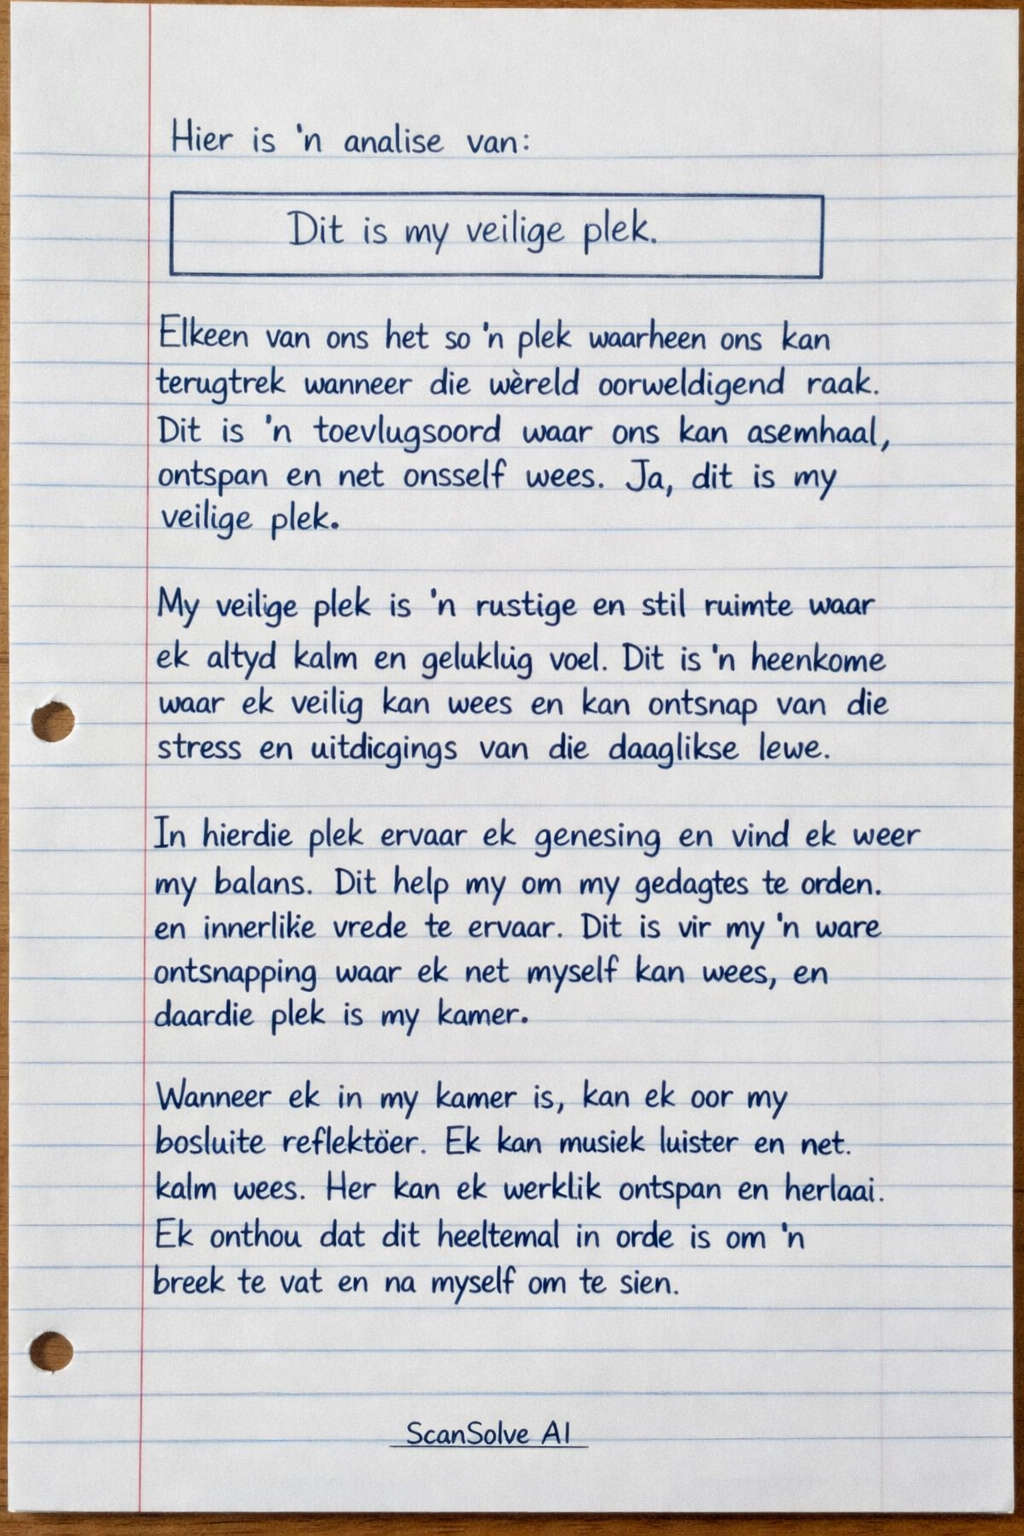 Hier is 'n analise van:
Dit is my veilige plek.
Elkeen van ons het so 'n plek waarheen ons kan
terugtrek wanneer die wèreld oorweldigend raak.
Dit is 'n toevlugsoord waar ons kan asemhaal,
ontspan en net onsself wees. Ja, dit is my
veilige plek.
My veilige plek is 'n rustige en stil ruimte waar
ek altyd kalm en gelukluig voel. Dit is 'n heenkome
waar ek veilig kan wees en kan ontsnap van die
stress en uitdicgings van die daaglikse lewe.
In hierdie plek ervaar ek genesing en vind ek weer
my balans. Dit help my om my gedagtes te orden.
en innerlike vrede te ervaar. Dit is vir my 'n ware
ontsnapping waar ek net myself kan wees, en
daardie plek is my kamer.
Wanneer ek in my kamer is, kan ek oor my
bosluite reflektöer. Ek kan musiek luister en net.
kalm wees. Her kan ek werklik ontspan en herlaai.
Ek onthou dat dit heeltemal in orde is om 'n
breek te vat en na myself om te sien.
ScanSolve AI